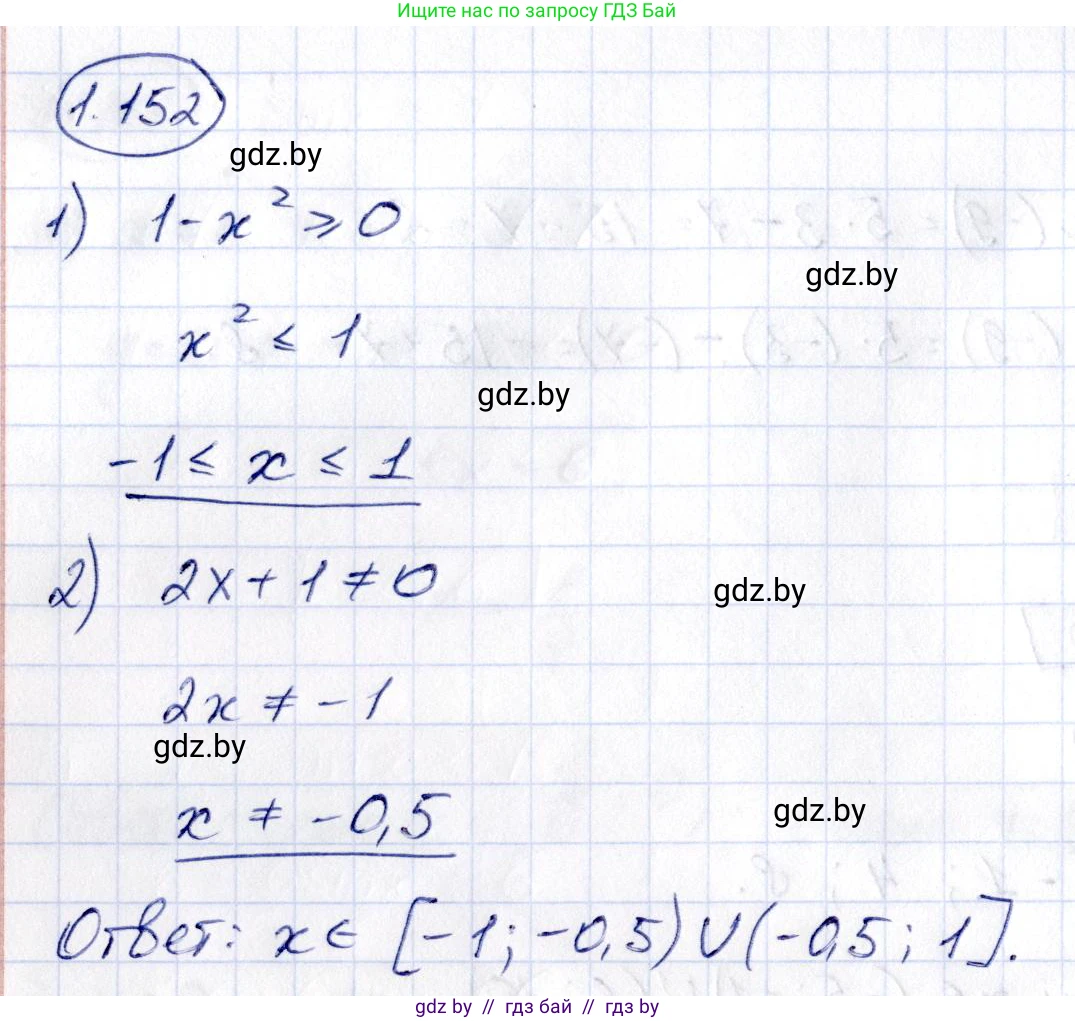 Ищите нас по запросу ГДЗ Бай
1.152
gdz.by
1) 1 - x² ⩾ 0
gdz.by
x² ≤ 1
gdz.by
-1 ≤ x ≤ 1
2) 2x + 1 ≠ 0
gdz.by
2x ≠ -1
gdz.by
x ≠ -0,5
gdz.by
Ответ: x ∈ [-1; -0,5) ∪ (-0,5; 1].
gdz.by // гдз бай // гдз by